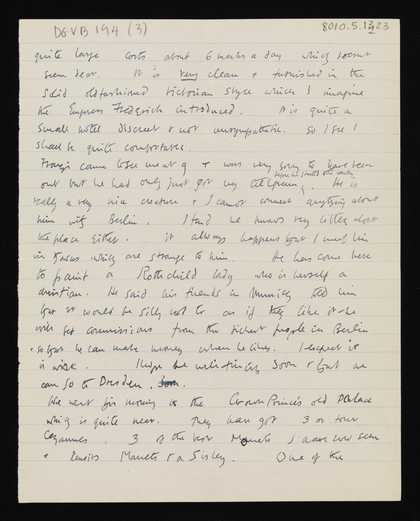 DGVB 194 (3)
8010.5.1323
quite large costs about 6 marks a day which doesnt
seem dear. It is very clean & furnished in the
solid oldfashioned Victorian style which I imagine
the Empress Frederick introduced. It is quite a
small hotel discreet & not unsympathetic. So I see I
shall be quite comfortable.
Francis came to see me at 9 & was very sorry to have been
out but he had only just got my telegram. He is
really a very nice creature & I cannot connect anything about
him with Berlin. I find he knows very little about
the place either. It always happens that I meet him
in towns which are strange to him. He has come here
to paint a Rothschild lady who is herself a
christian. He said his friends in Munich told him
that it would be silly not to as if they like it he
will get commissions from the richest people in Berlin
& so that he can make money when he likes. I expect it
is wise. I hope he will finish soon & that we
can go to Dresden.
We went this morning to the Crown Princes old palace
which is quite near. They have got 3 or four
Cezannes. 3 of the best Manets I have ever seen
& Renoirs Manets & a Sisley. One of the